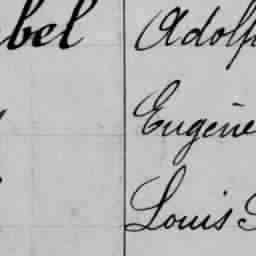 bel Adolf
Eugène
Louis